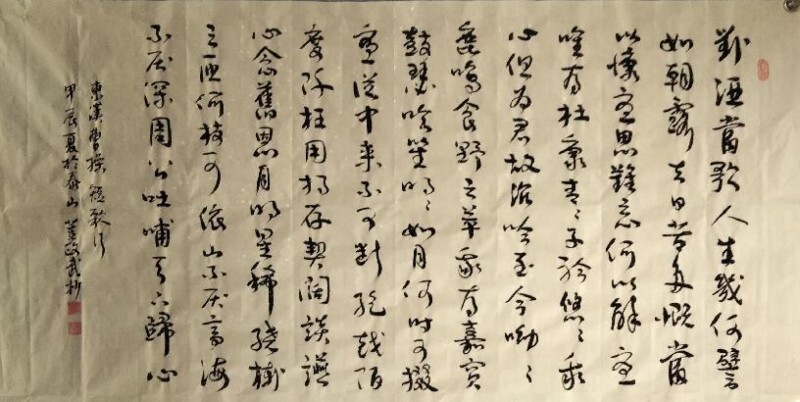 對酒當歌人生幾何譬
如朝露去日苦多慨當
以慷憂思難忘何以解憂
唯有杜康青々子衿悠々我
心但為君故沉吟至今呦々
鹿鳴食野之苹我有嘉賓
鼓瑟吹笙明々如月何時可掇
憂從中來不可斷絕越陌
度阡枉用相存契闊談讌
心念舊恩月明星稀繞樹
三匝何枝可依山不厭高海
不厭深周公吐哺天下歸心
東漢曹操短歌行
甲辰夏於泰山